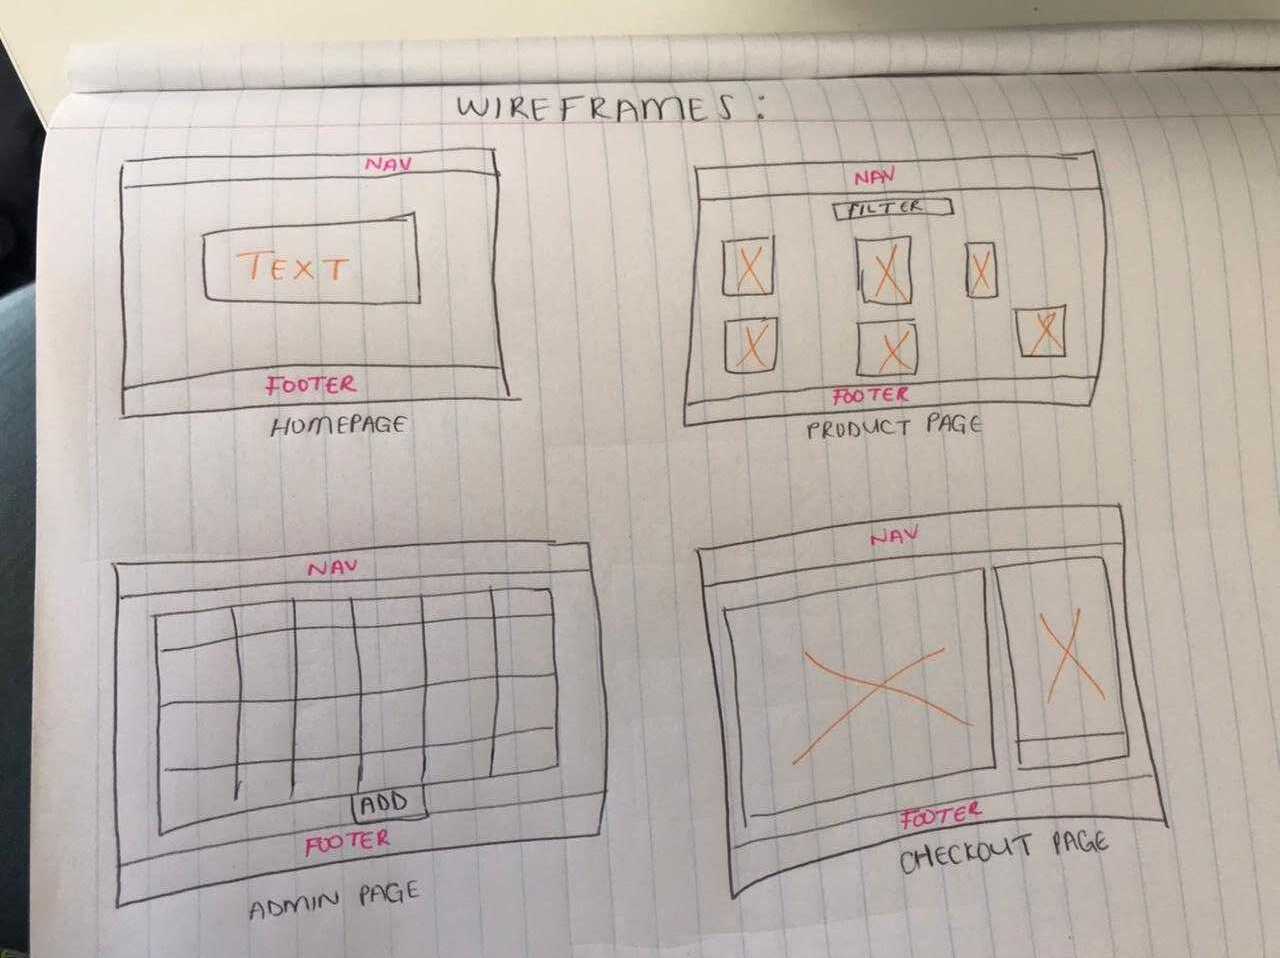 WIREFRAMES:
NAV
TEXT
FOOTER
HOMEPAGE
NAV
FILTER
X X X
X X X
FOOTER
PRODUCT PAGE
NAV
ADD
FOOTER
ADMIN PAGE
NAV
X X
FOOTER
CHECKOUT PAGE